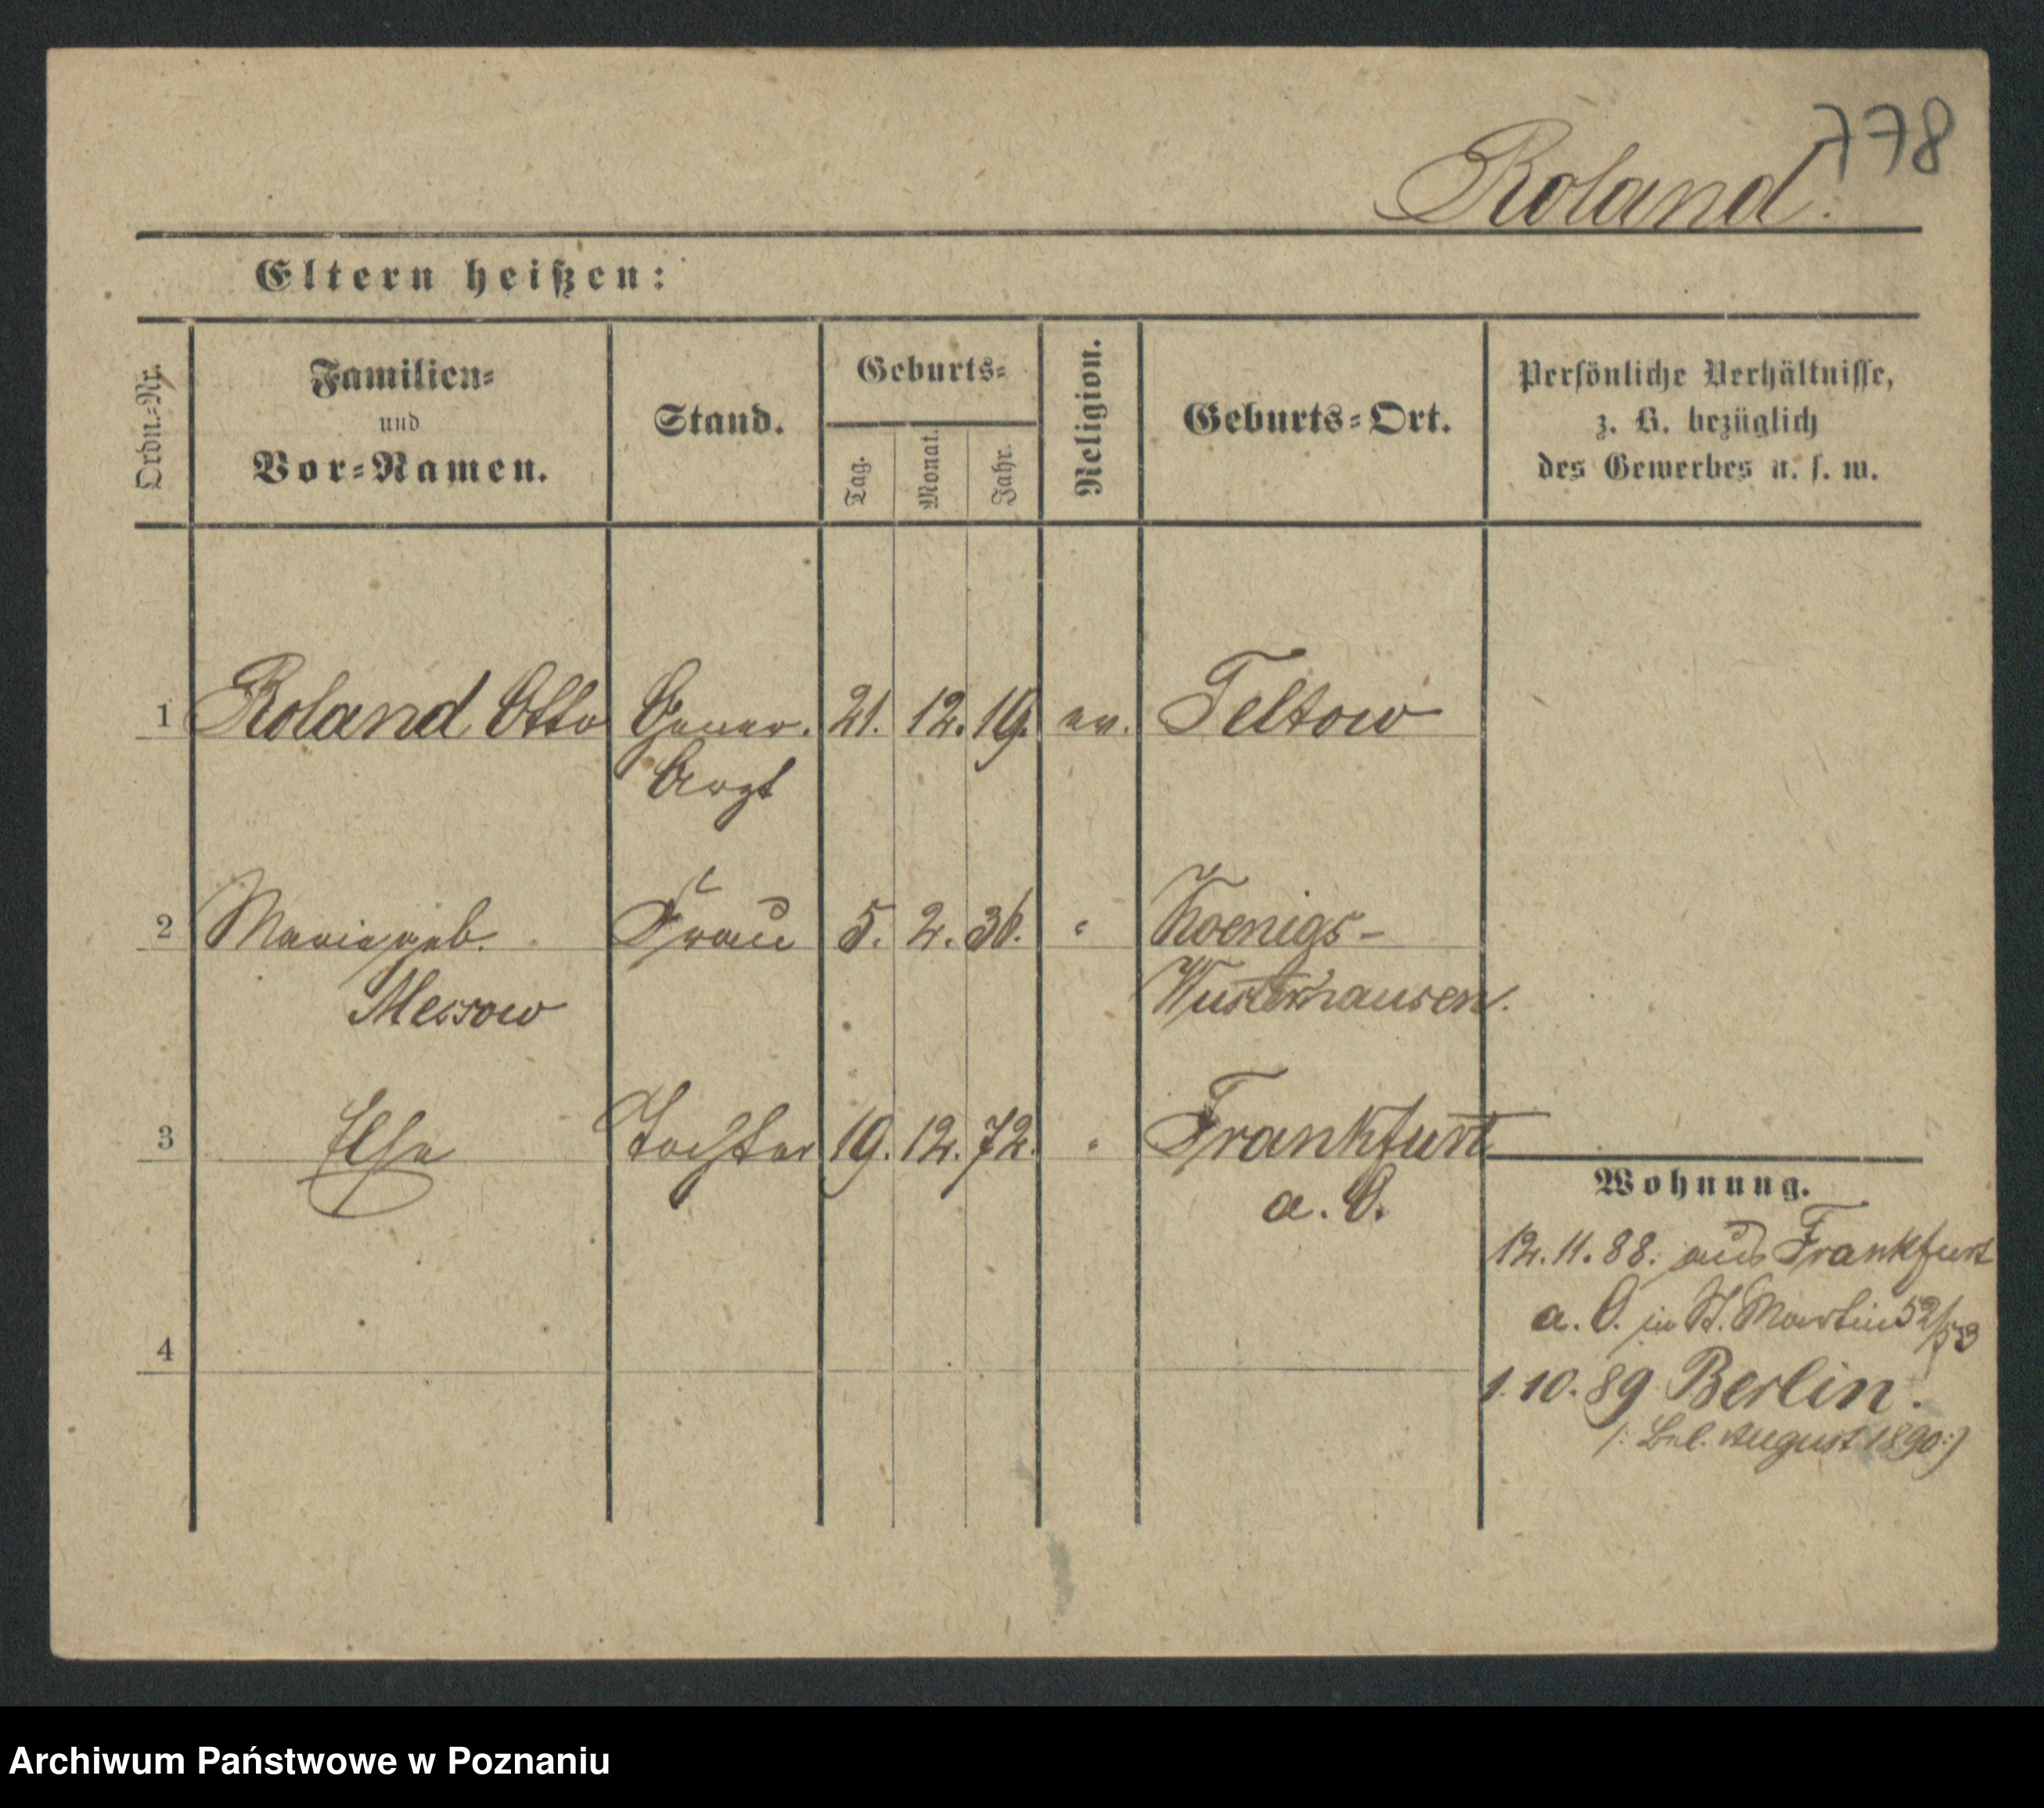 778
Roland.
Eltern heißen:
Ordn.-Nr.
Familien-
und
Vor-Namen.
Stand.
Geburts-
Tag.
Monat.
Jahr.
Religion.
Geburts-Ort.
Persönliche Verhältnisse,
z. B. bezüglich
des Gewerbes u. s. w.
1 Roland Otto Gener. 21. 12. 19. ev. Teltow
Arzt
2 Marie geb. Frau 5. 2. 36. " Koenigs-
Messow Wusterhausen.
3 Else Tochter 19. 12. 72. " Frankfurt
a. O.
Wohnung.
12. 11. 88. aus Frankfurt
a. O. in St. Martin 52/53
4
1. 10. 89 Berlin.
August 1890:)
Archiwum Państwowe w Poznaniu